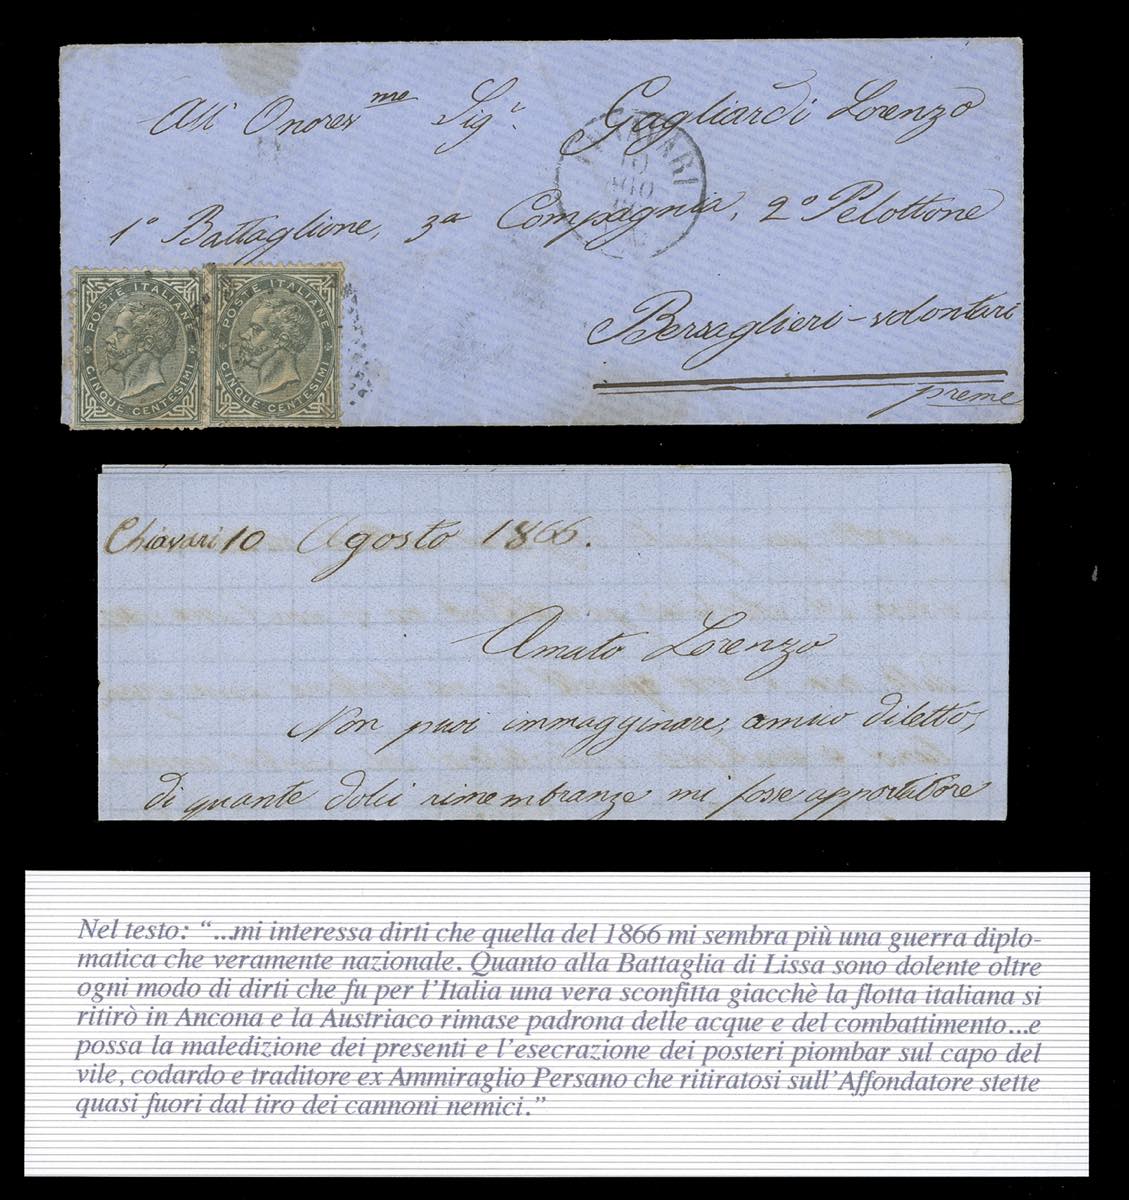 All' Onorevme Sigr. Gagliardi Lorenzo
CHIAVARI
10
1o Battaglione, 3a Compagnia, 2o Pelottone
POSTE ITALIANE
CINQUE CENTESIMI
POSTE ITALIANE
CINQUE CENTESIMI
Bersaglieri-volontari
preme
Chiavari 10 Agosto 1866.
Amato Lorenzo
Non puoi immagginare, amico diletto,
di quante dolci rimembranze mi fosse apportatore
Nel testo: “...mi interessa dirti che quella del 1866 mi sembra più una guerra diplo-
matica che veramente nazionale. Quanto alla Battaglia di Lissa sono dolente oltre
ogni modo di dirti che fu per l'Italia una vera sconfitta giacchè la flotta italiana si
ritirò in Ancona e la Austriaco rimase padrona delle acque e del combattimento...e
possa la maledizione dei presenti e l'esecrazione dei posteri piombar sul capo del
vile, codardo e traditore ex Ammiraglio Persano che ritiratosi sull'Affondatore stette
quasi fuori dal tiro dei cannoni nemici.”